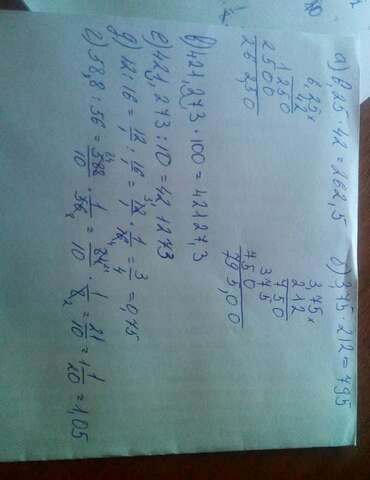 а) 6,25 · 42 = 262,5
6,25 ×
4,2
1250
2500
26,250
б) 3,75 · 212 = 795
3,75 ×
212
750
375
750
795,00
в) 421,273 · 100 = 42127,3
е) 421,273 : 10 = 42,1273
д) 12 : 16 = 12/1 : 16/1 = 12/1 · 1/16 = 3/4 = 0,75
г) 58,8 : 56 = 588/10 · 1/56 = 84/10 · 1/8 = 21/20 = 1 1/20 = 1,05